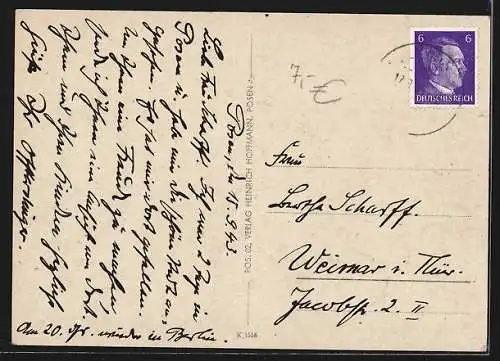 Posen, d. 18.9.43
Liebe Frau Scharff. Ich war 2 Tage in
Posen u. habe mir die schöne Stadt an-
gesehen. Es hat mir dort gefallen.
Um Ihnen eine Freude zu machen
sende ich Ihnen von dort
Ihnen und Ihren Kindern herzliche
Grüße Ihr
Am 20. ds. wieder in Berlin.
POS. 02, VERLAG HEINRICH HOFFMANN, POSEN
K 1556
7,- €
6 6
DEUTSCHES REICH
Frau
Bertha Scharff.
Weimar i. Thür.
Jacobstr. 2. II